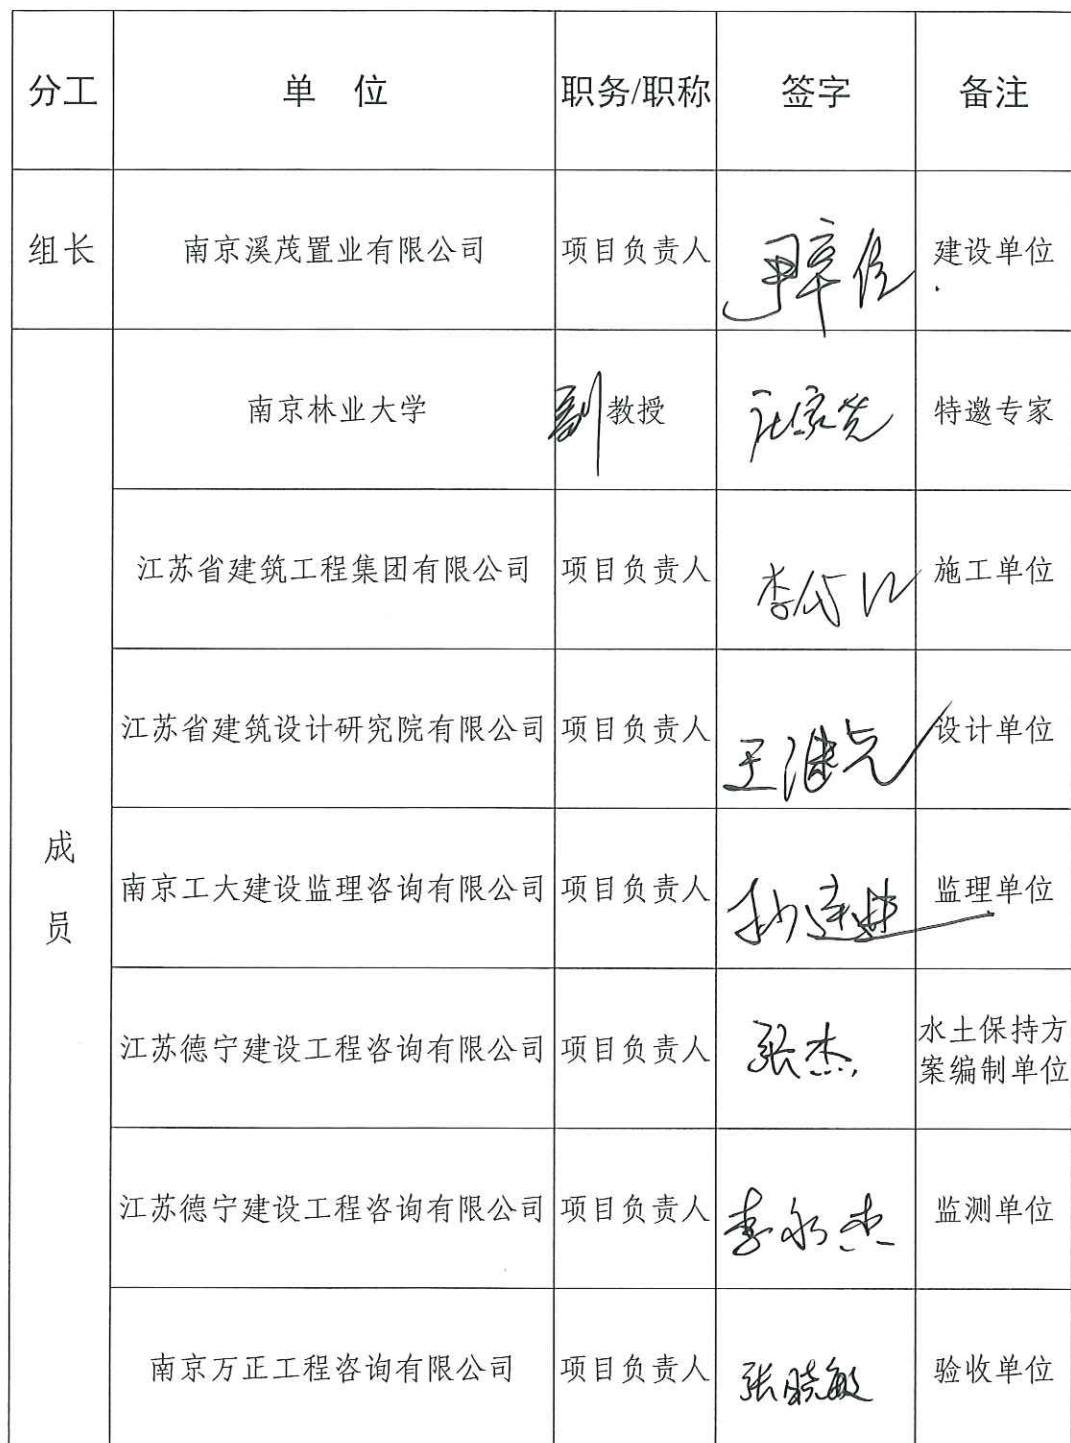 分工 单 位 职务/职称 签字 备注
组长 南京溪茂置业有限公司 项目负责人 建设单位
南京林业大学 副教授 特邀专家
江苏省建筑工程集团有限公司 项目负责人 施工单位
江苏省建筑设计研究院有限公司 项目负责人 设计单位
成员 南京工大建设监理咨询有限公司 项目负责人 监理单位
江苏德宁建设工程咨询有限公司 项目负责人 张杰 水土保持方
案编制单位
江苏德宁建设工程咨询有限公司 项目负责人 李永杰 监测单位
南京万正工程咨询有限公司 项目负责人 张晓敏 验收单位